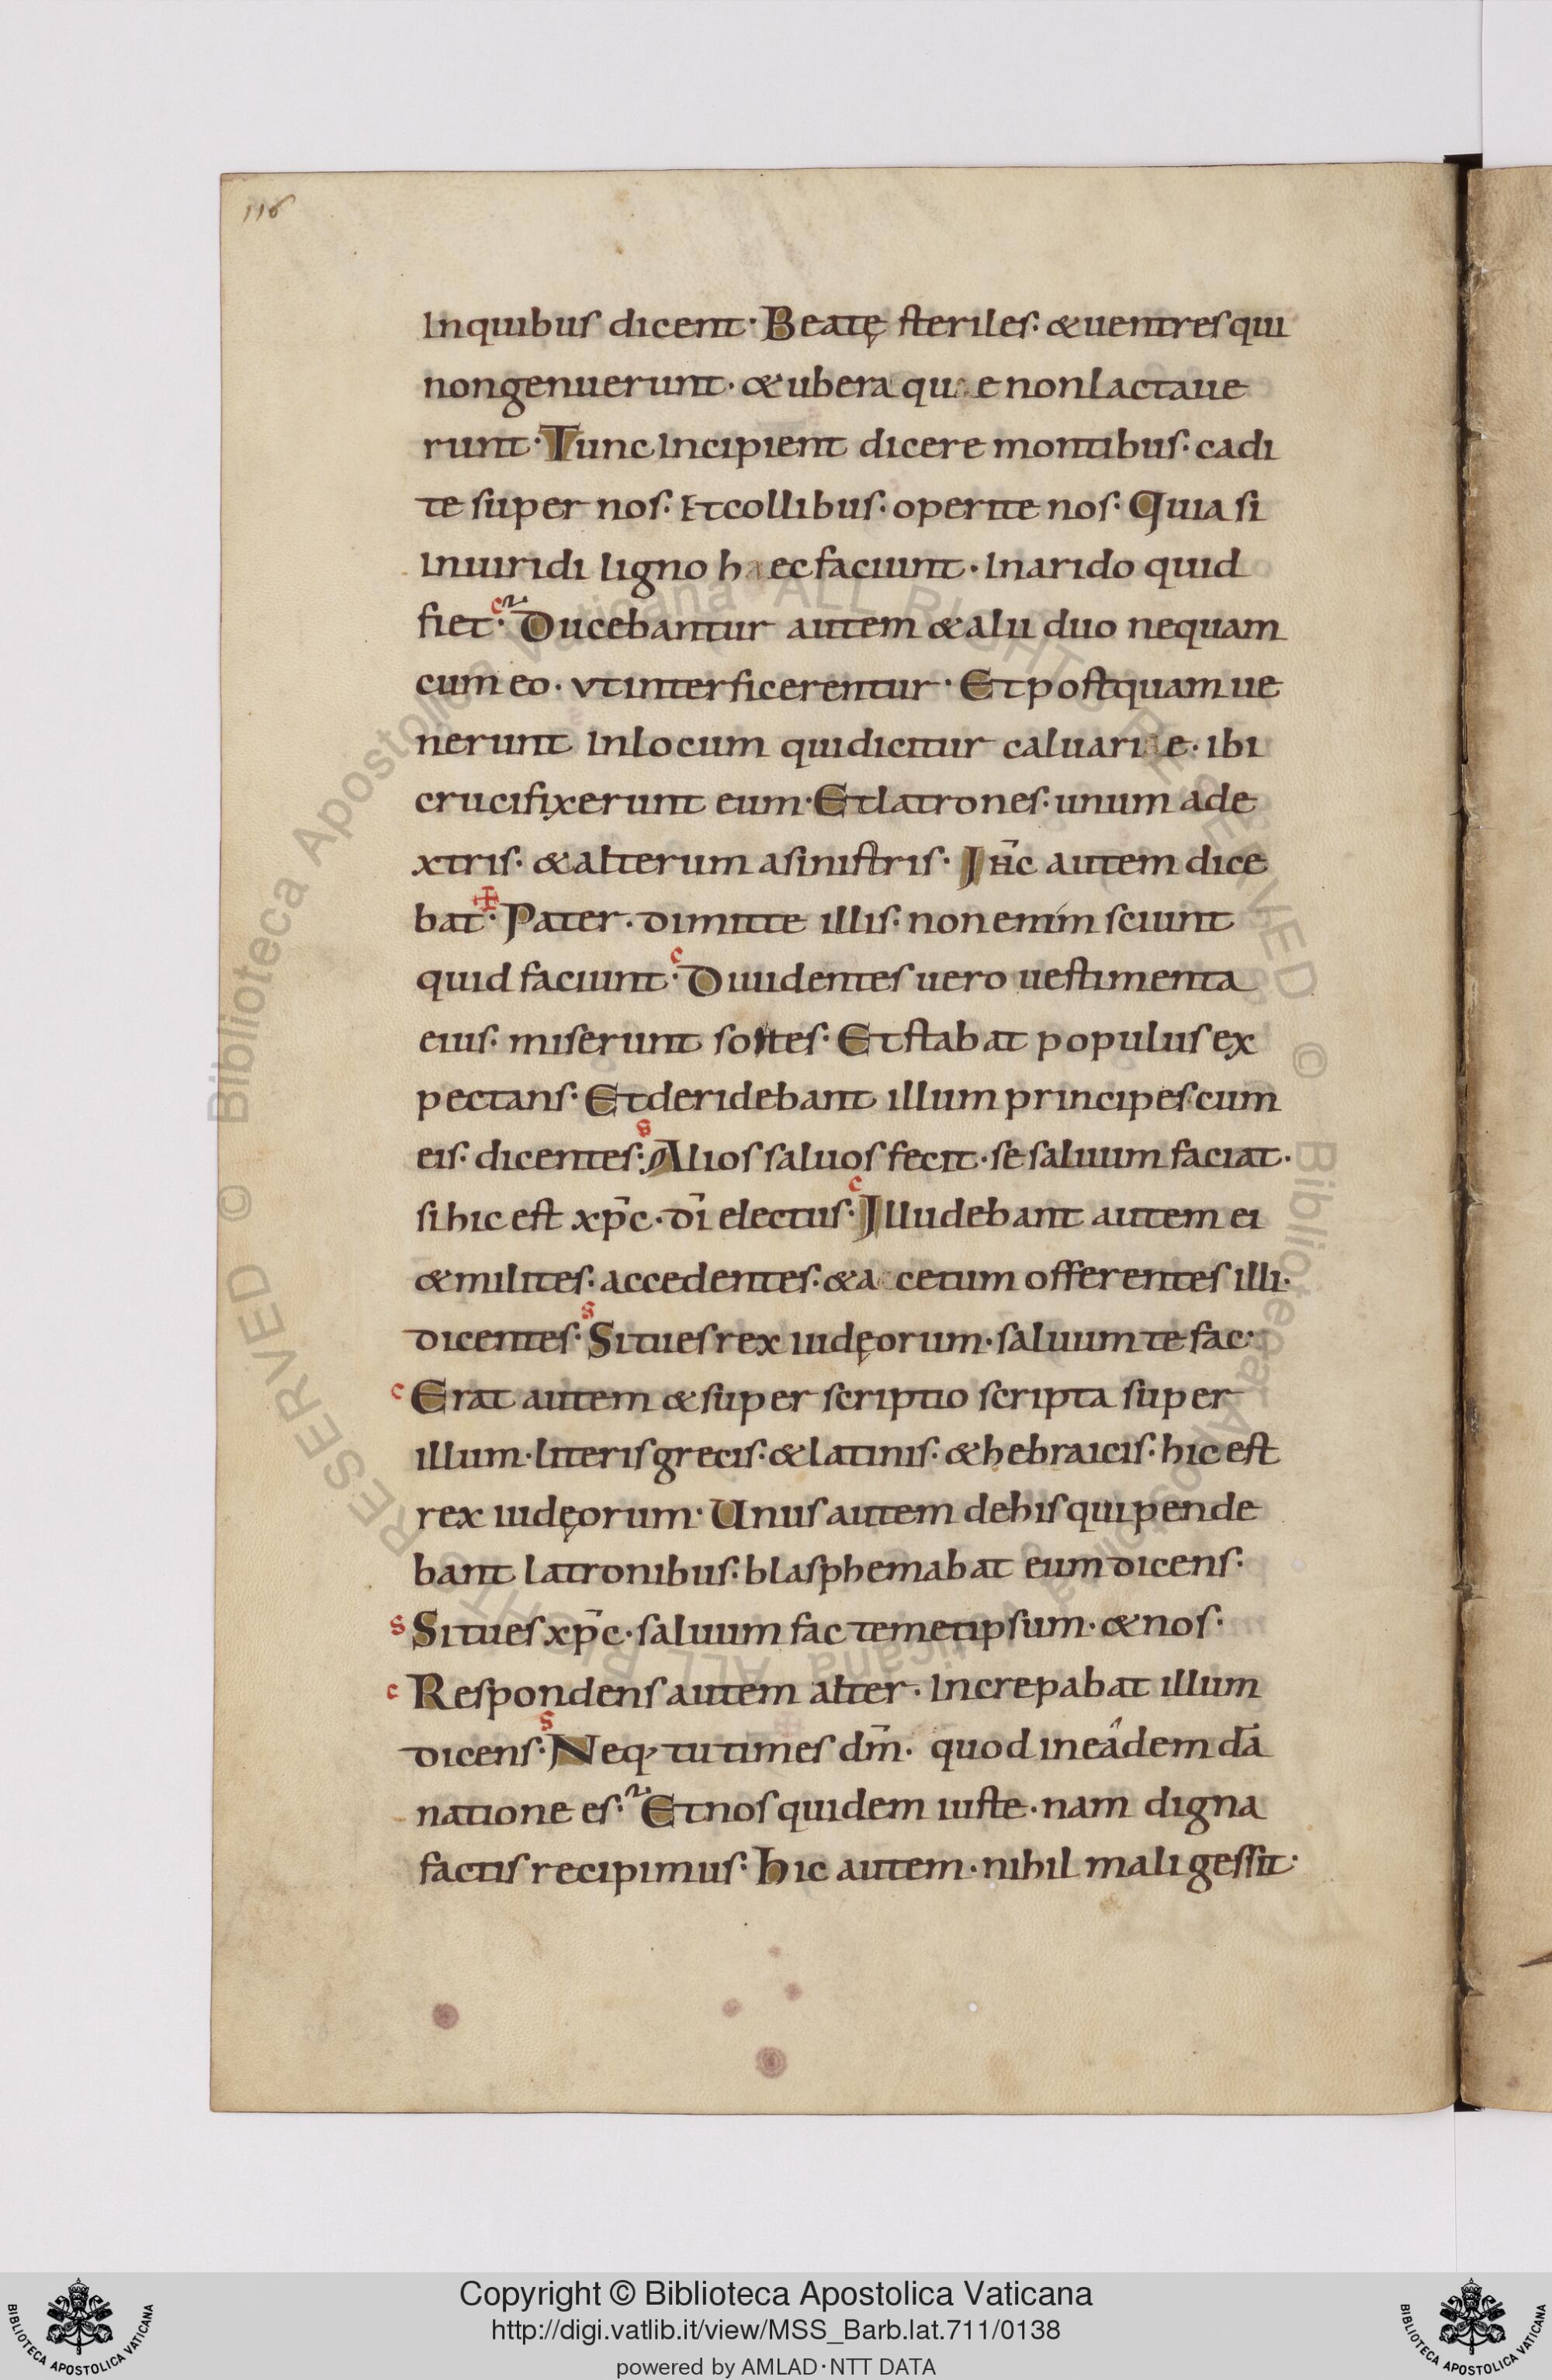 116
Inquibus dicent· Beatę steriles· &uentres qui
nongenuerunt· &ubera qu e nonlactaue
runt· Tunc Incipient dicere montibus· cadi
te super nos· Etcollibus· operite nos· Quia si
Inuiridi ligno h ec faciunt· Inarido quid
fiet· c Ducebantur autem &alii duo nequam
cum eo· vtinterficerentur· Etpostquam ue
nerunt Inlocum quidicitur caluari e· ibi
crucifixerunt eum· Etlatrones· unum ade
xtris· &alterum asinistris· Ih̄c autem dice
bat· ✠ Pater· dimitte illis· non enim sciunt
quid faciunt· c Diuidentes uero uestimenta
eius· miserunt sortes· Etstabat populus ex
pectans· Etderidebant illum principes cum
eis· dicentes· s Alios saluos fecit· se saluum faciat·
si hic est xp̄c· dī electus· c Illudebant autem ei
&milites· accedentes· &a cetum offerentes illi·
dicentes· s Situes rex iudęorum· saluum te fac·
c Erat autem &super scriptio scripta super
illum· literis grecis· &latinis· &hebraicis· hic est
rex iudęorum· Unus autem dehis qui pende
bant latronibus· blasphemabat eum dicens·
s Situes xp̄c· saluum fac temetipsum· &nos·
c Respondens autem alter· Increpabat illum
dicens· s Neq· tu times dm̄· quod ineadem dā
natione es· Etnos quidem iuste· nam digna
factis recipimus· hic autem· nihil mali gessit·
Copyright © Biblioteca Apostolica Vaticana
http://digi.vatlib.it/view/MSS_Barb.lat.711/0138
powered by AMLAD·NTT DATA
BIBLIOTECA APOSTOLICA VATICANA
BIBLIOTECA APOSTOLICA VATICANA
© Biblioteca Apostolica Vaticana ALL RIGHTS RESERVED
© Biblioteca Apostolica Vaticana ALL RIGHTS RESERVED